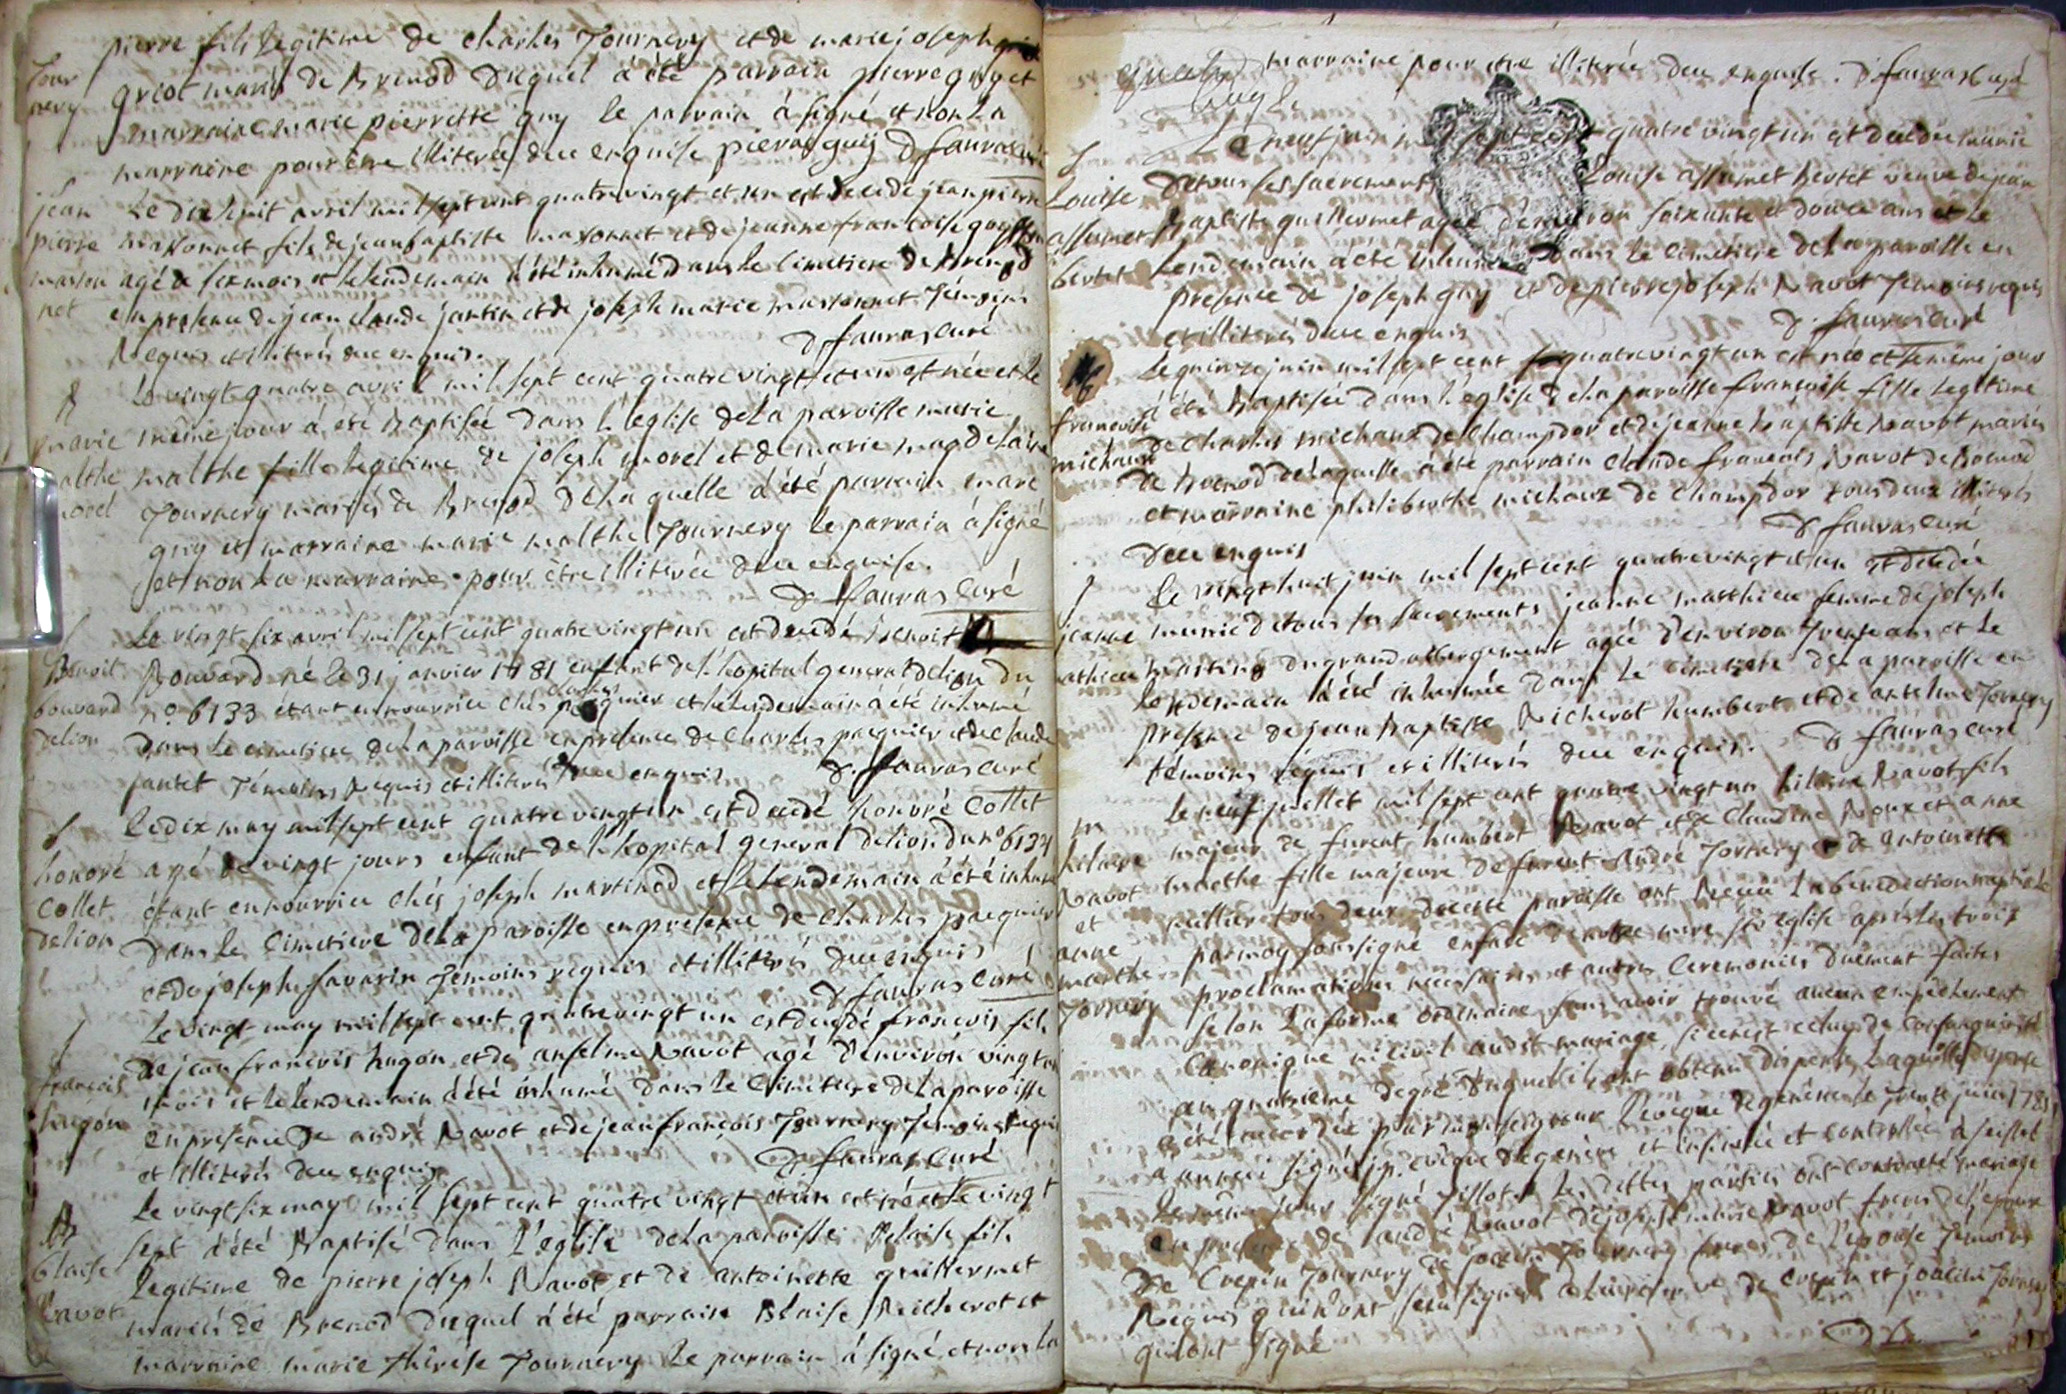 pierre fils legitime de charles Tournery et de marie joseph
Tour
nery
griot mariés de Brenod duquel a été parrain pierre guy et
marraine marie pierrette guy le parrain à signé et non la
marraine pour être illiterée duee enquise pierre guy D favras curé
jean
pierre
masson
net
Le dix huit avril mil sept cent quatre vingt et un est decedé jean pierre
massonnet fils de jean baptiste massonnet et de jeanne francoise
agé de six mois et le lendemain à été inhumé dans le cimetiere de Brenod
en presence de jean claude jantin et de joseph marie massonnet Témoins
Requis et illiterés due enquis.
D favras curé
B
marie
malthe
morel
Le vingt quatre avril mil sept cent quatre vingt et un est née et le
même jour à été Baptisée dans L'église de La paroisse marie
malthe fille legitime de joseph morel et de marie magdelaine
Tournery mariés de Brenod de La quelle à été parrain marc
guy et marraine marie malthe Tournery le parrain à signé
et non La marraine pour être illiterée duee enquise.
D favras Curé
S
Benoit
bouvard
delion
Le vingt six avril mil sept cent quatre vingt un est decedé Benoit
Bouvard né le 31 janvier 1781 enfant de l'hopital general de lion du
n.º 6133 étant en nourrice chés charles pacquier et le lendemain à été inhumé
dans le cimetiere de La paroisse en presence de Charles pacquier et de claude
jantet Témoins Requis et illiterés duee enquis.
D. favras curé
S
honoré
Collet
delion
Le dix may mil sept cent quatre vingt un est decedé honoré Collet
agé de vingt jours enfant de l'hopital general de lion du nº 6134
étant en nourrice chés joseph martinod et le lendemain à été inhumé
dans le Cimetiere de La paroisse en presence de Charles pacquier
et de joseph savarin Témoins requis et illiterés duee enquis
D favras curé
S
francois
hugon
Le vingt may mil sept cent quatre vingt un est decedé francois fils
de jean francois hugon et de anselme Ravot agé d'environ vingt un
mois et le lendemain à été inhumé dans le Cimetiere de La paroisse
en presence de andré Ravot et de jean francois Tournery Témoins Requis
et illiterés duee enquis
D favras Curé
B
blaise
Ravot
Le vingt six may mil sept cent quatre vingt et un est né et le vingt
sept à été Baptisé dans L'église de La paroisse Blaise fils
legitime de pierre joseph Ravot et de antoinette guillermet
mariés de Brenod duquel à été parrain Blaise Richerot et
marraine marie thérése Tournery le parrain à signé et non la
marraine pour être illiterée duee enquise. D favras curé
S
Louise
assumet
bertet
Le neuf juin mil sept cent quatre vingt un est decedée munie
de tous ses sacrements Louise assumet bertet veuve de jean
Baptiste guillermet agée d'environ soixante et douze ans et le
Lendemain à été inhumée dans le cimetiere de La paroisse en
presence de joseph guy et de pierre joseph Ravot Temoins requis
et illiterés duee enquis
D. favras curé
B
francoise
michaux
Le quinze juin mil sept cent quatre vingt un est née et le même jour
à été Baptisée dans L'église de La paroisse francoise fille legitime
de Charles michaux de Champdor et de jeanne Baptiste Ravot mariés
de brenod de laquelle à été parrain claude francois Ravot de Brenod
et marraine philiberthe michaux de champdor tous deux illiterés
duee enquis
D favras curé
S
jeanne
mathieu
Le vingt huit juin mil sept cent quatre vingt et un est decedée
munie de tous ses sacrements jeanne matthieu femme de joseph
martin du grand abbergement agée d'environ trente ans et le
lendemain à été inhumée dans Le cimetiere de La paroisse en
presence de jean Baptiste Richerot humbert et de antelme Tornery
témoins réquis et illiterés duee enquis.
D favras curé
m
hilaire
Ravot
et
anne
marthe
Tornery
Le neuf juillet mil sept cent quatre vingt un hilaire Ravot fils
majeur de furent humbert Ravot et de Claudine Roux et anne
marthe fille majeure de furent André Tornery et de antoinette
tous deux de cette paroisse ont Receu La benediction nuptiale
par moy soussigné en face de notre mere ste église aprés les trois
proclamations necessaires et autres Ceremonies duement faites
selon La forme ordinaire sans avoir trouvé aucun empechement
Canonique ni civil audit mariage, si ce n'est celuy de Consanguinité
au quatrieme degré duquel ils ont obtenu dispense Laquelle dispense
a été accordée par monseigneur L'evêque de genéve le trente juin 1781
a anneci signé j.p. evêque de genéve et insinuée et controllée à seissel
Le même jour signé Les dittes parties ont contracté mariage
en presence de andré Ravot de joseph marie Ravot freres de l'epoux
de Crepin Tournery de joacim Tournery freres de L'epouse Temoins
Requis qui n'ont sceu signer à La reserve de Crepin et joacim Tornery
qui ont signé